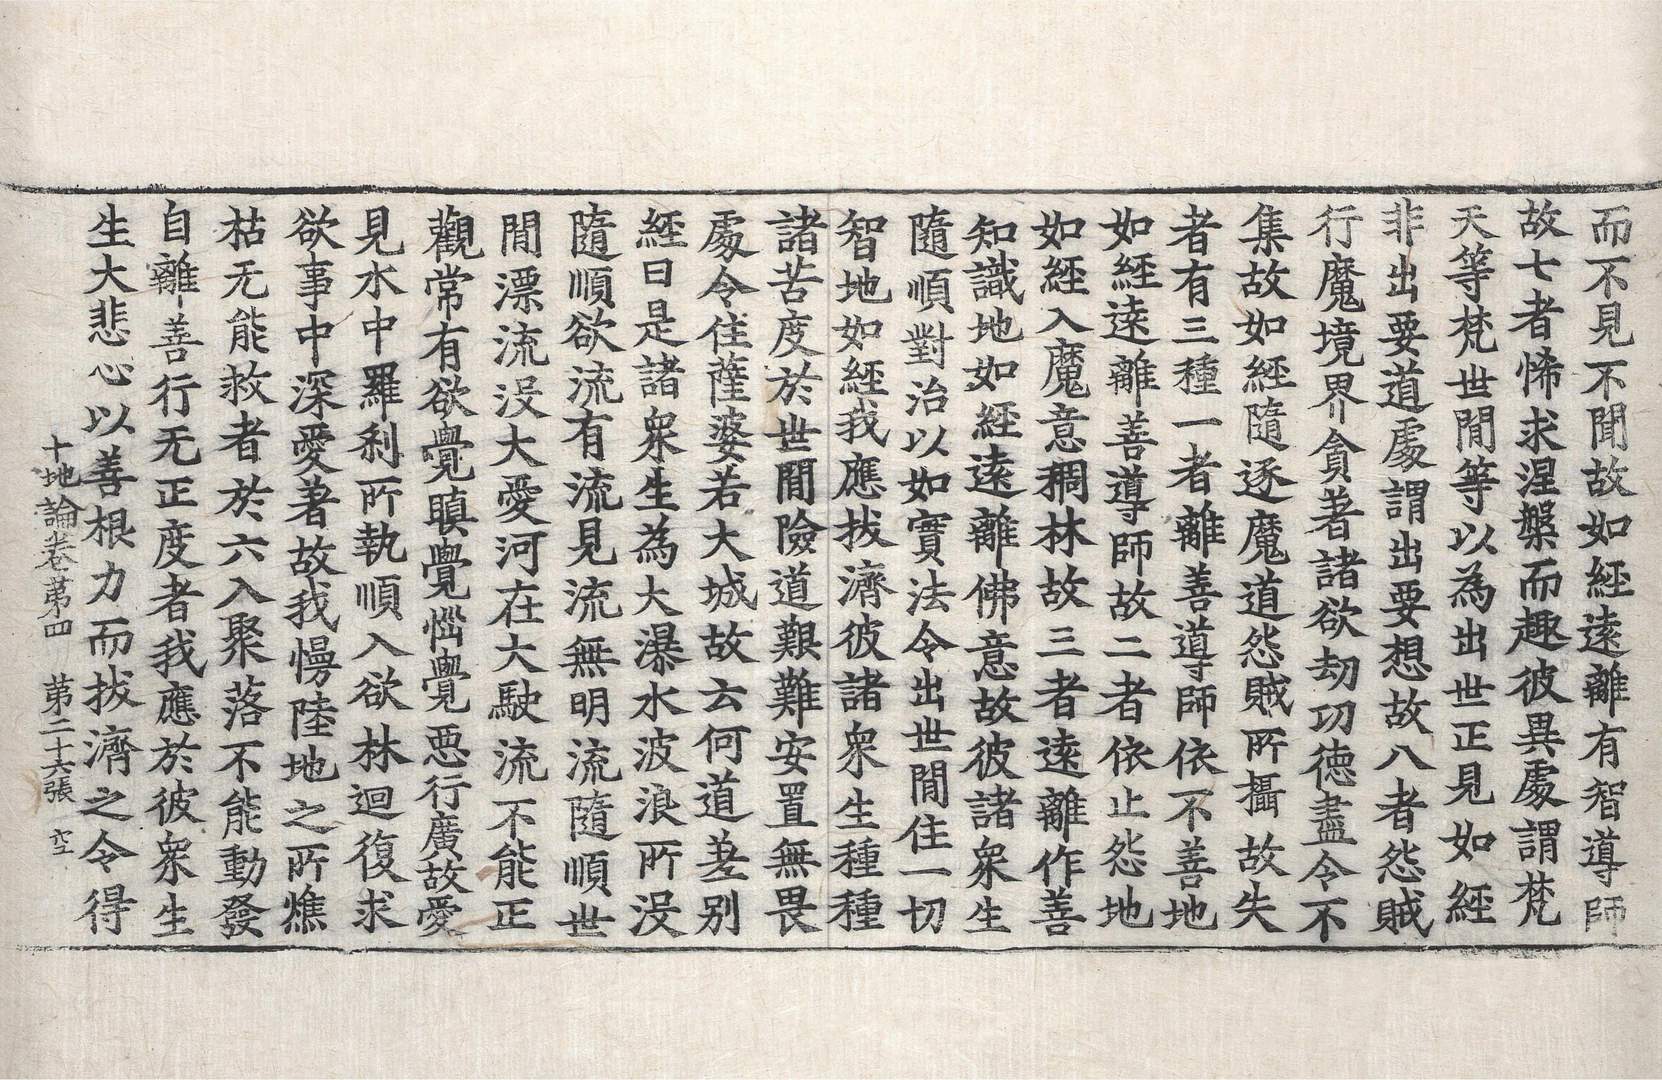 而不見不聞故如經遠離有智導師
故七者悕求涅槃而趣彼異處謂梵
天等梵世間等以為出世正見如經
非出要道處謂出要想故八者怨賊
行魔境界貪著諸欲劫功德盡令不
集故如經隨逐魔道怨賊所攝故失
者有三種一者離善導師依不善地
如經遠離善導師故二者依止怨地
如經入魔意稠林故三者遠離作善
知識地如經遠離佛意故彼諸衆生
隨順對治以如實法令出世間住一切
智地如經我應拔濟彼諸衆生種種
諸苦度於世間險道艱難安置無畏
處令住薩婆若大城故云何道差别
經曰是諸衆生為大瀑水波浪所没
隨順欲流有流見流無明流隨順世
間漂流没大愛河在大駛流不能正
觀常有欲覺瞋覺惱覺惡行廣故愛
見水中羅刹所執順入欲林迴復求
欲事中深愛著故我慢陸地之所燋
枯无能救者於六入聚落不能動發
自離善行无正度者我應於彼衆生
生大悲心以善根力而拔濟之令得
十地論卷第四　第二十六張